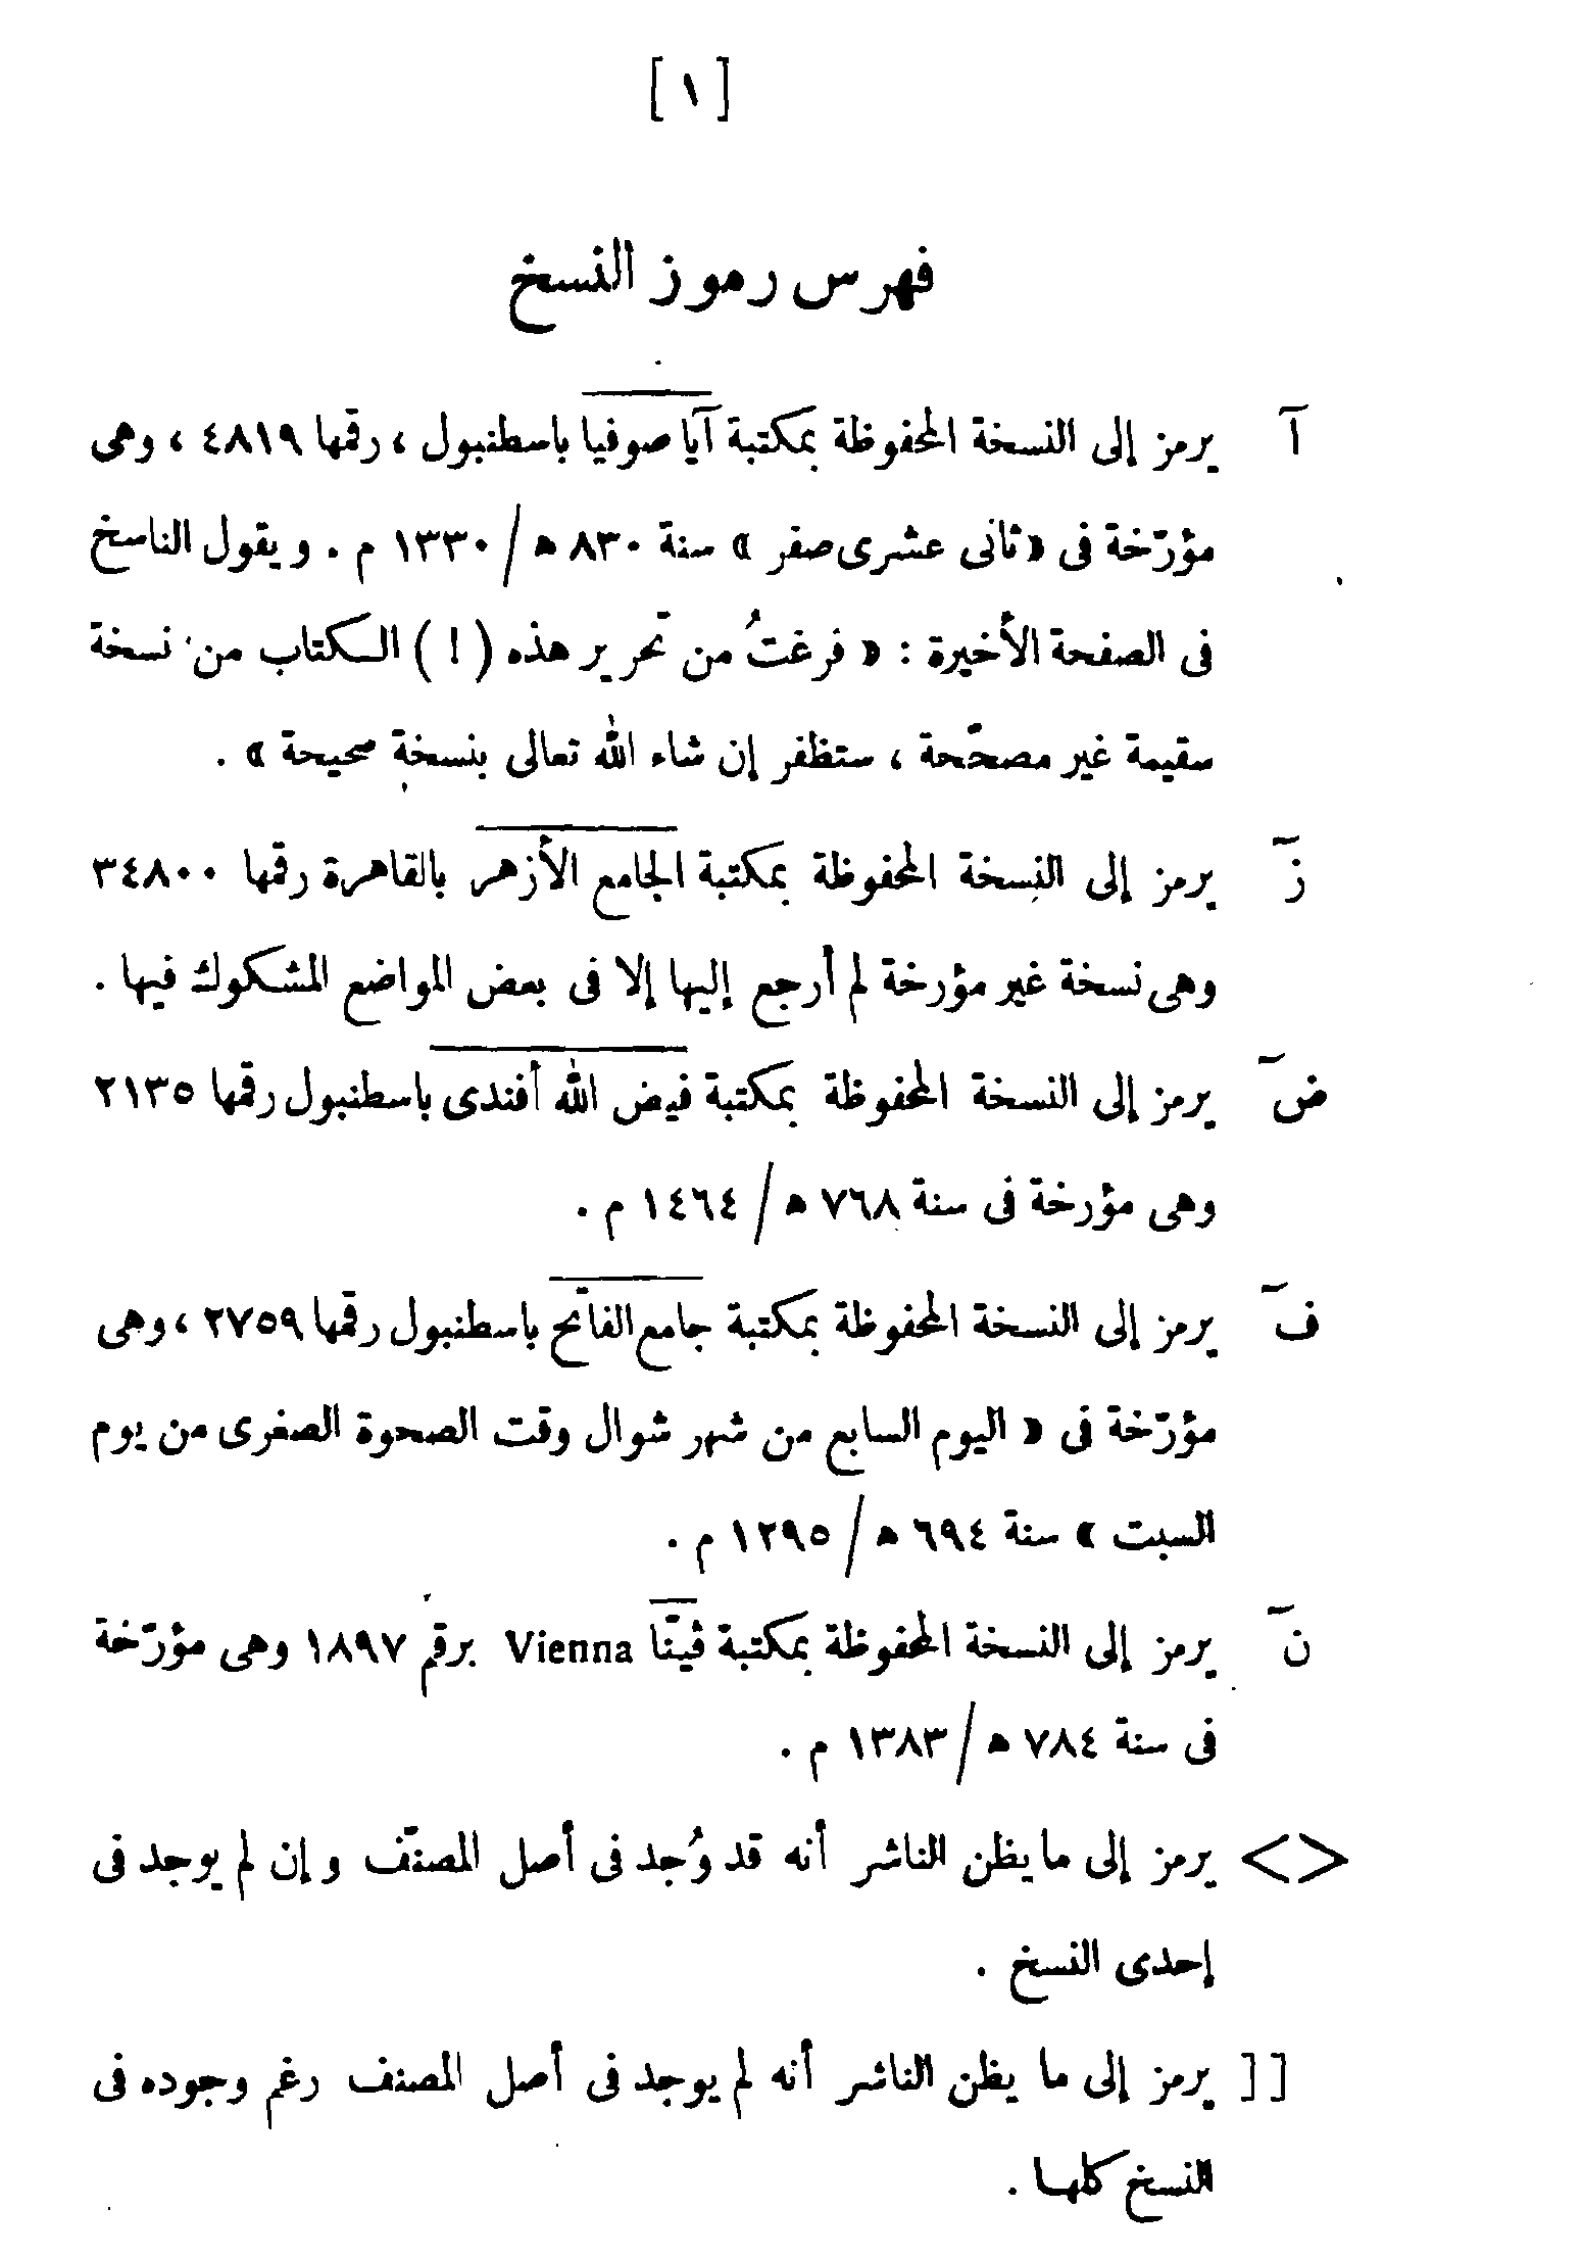 [ ١ ]
فهرس رموز النسخ
آ يرمز إلى النسخة المحفوظة بمكتبة آيا صوفيا باسطنبول ، رقمها ٤٨١٩ ، وهى
مؤرّخة فى « ثانى عشرى صفر » سنة ٨٣٠ ه / ١٣٣٠ م . ويقول الناسخ
فى الصفحة الأخيرة : « فرغتُ من تحرير هذه ( ! ) الكتاب من نسخة
سقيمة غير مصحّحة ، ستظفر إن شاء الله تعالى بنسخة صحيحة » .
زَ يرمز إلى النسخة المحفوظة بمكتبة الجامع الأزهر بالقاهرة رقمها ٣٤٨٠٠
وهى نسخة غير مؤرخة لم أرجع إليها إلا فى بعض المواضع المشكوك فيها .
ضَ يرمز إلى النسخة المحفوظة بمكتبة فيض الله أفندى باسطنبول رقمها ٢١٣٥
وهى مؤرخة فى سنة ٧٦٨ ه / ١٤٦٤ م .
فَ يرمز إلى النسخة المحفوظة بمكتبة جامع الفاتح باسطنبول رقمها ٢٧٥٩ ، وهى
مؤرّخة فى « اليوم السابع من شهر شوال وقت الصحوة الصغرى من يوم
السبت » سنة ٦٩٤ ه / ١٢٩٥ م .
نَ يرمز إلى النسخة المحفوظة بمكتبة ڤينّا Vienna برقم ١٨٩٧ وهى مؤرّخة
فى سنة ٧٨٤ ه / ١٣٨٣ م .
< > يرمز إلى ما يظن الناشر أنه قد وُجد فى أصل المصنّف وإن لم يوجد فى
إحدى النسخ .
[ [ يرمز إلى ما يظن الناشر أنه لم يوجد فى أصل المصنف رغم وجوده فى
النسخ كلها .